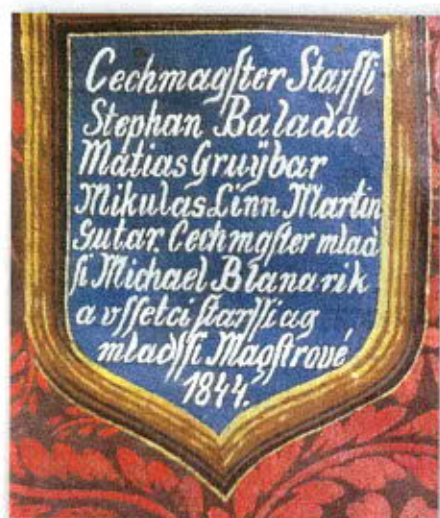 Cechmagſter Starſſi
Stephan Balada
Mátias Gruÿbar
Mikulas Linn Martin
Gutar. Cechmgſter mlad
ſi Michael Blanarik
a vſſetci ſtarſſi ag
mladſſi Magſtrové
1844.